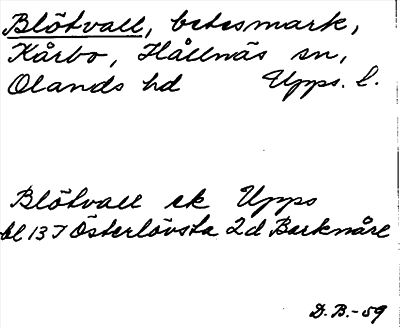 Blötvall, betesmark,
Kårbo, Hållnäs sn,
Olands hd Upps. l.
Blötvall ek Upps
bl 137 Österlövsta 2d Barknåre
D. B.-59